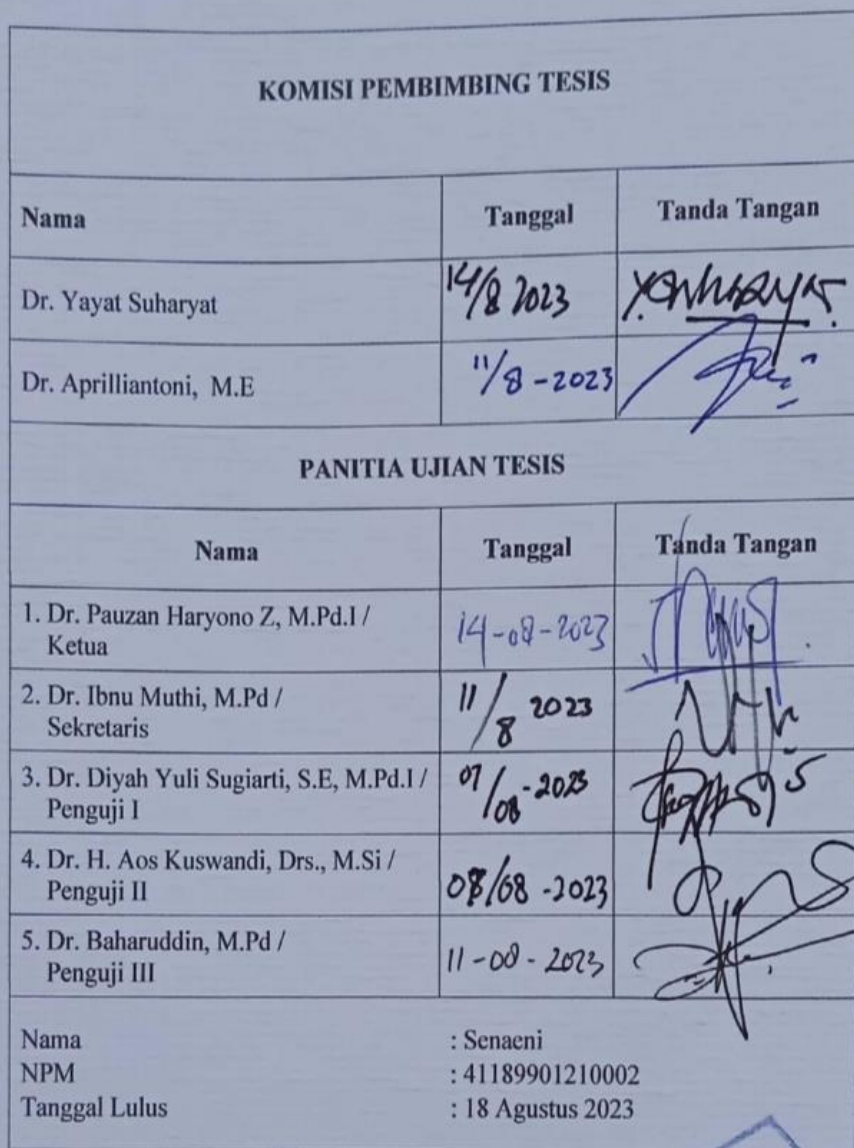 KOMISI PEMBIMBING TESIS
Nama Tanggal Tanda Tangan
Dr. Yayat Suharyat 14/8 2023
Dr. Aprilliantoni, M.E 11/8 - 2023
PANITIA UJIAN TESIS
Nama Tanggal Tanda Tangan
1. Dr. Pauzan Haryono Z, M.Pd.I / 14-08-2023
Ketua
2. Dr. Ibnu Muthi, M.Pd / 11/8 2023
Sekretaris
3. Dr. Diyah Yuli Sugiarti, S.E, M.Pd.I / 07/08-2023
Penguji I
4. Dr. H. Aos Kuswandi, Drs., M.Si / 08/08 -2023
Penguji II
5. Dr. Baharuddin, M.Pd / 11-08-2023
Penguji III
Nama : Senaeni
NPM : 41189901210002
Tanggal Lulus : 18 Agustus 2023